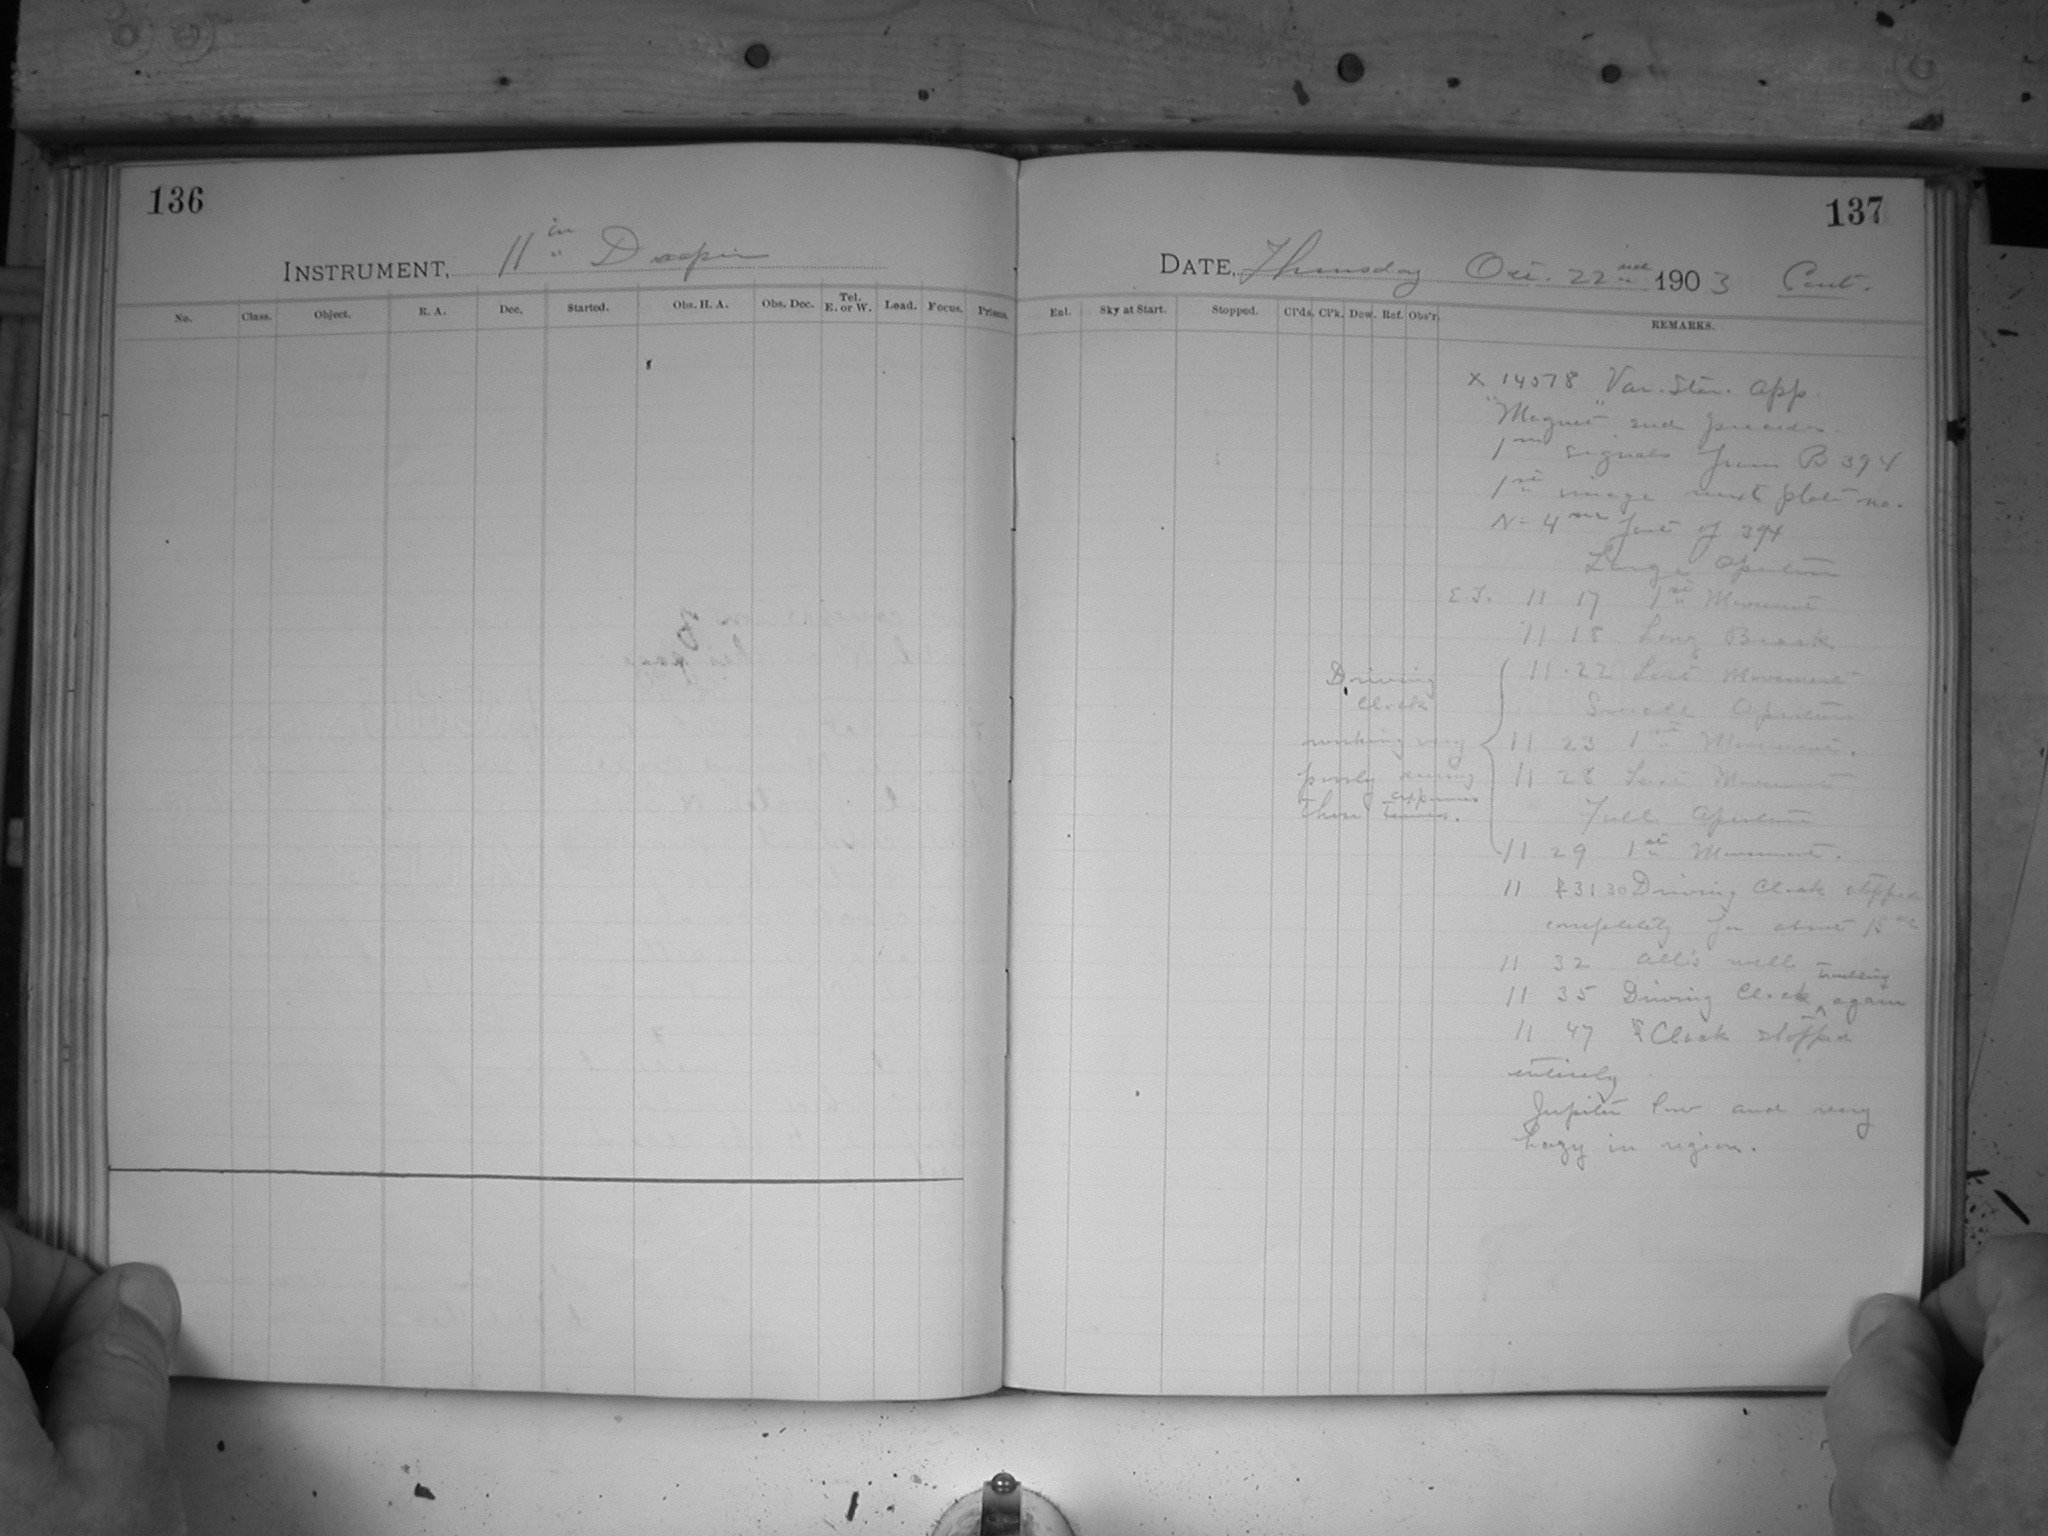 136
INSTRUMENT, 11 in Draper
No. Class. Object. R. A. Dec. Started. Obs. H. A. Obs. Dec. Tel. E. or W. Load. Focus. Prisms.
137
DATE, Thursday Oct. 22nd 1903 Cont.
Enl. Sky at Start. Stopped. Cl'ds. Cl'k. Dew. Ref. Obs'r. REMARKS.
X 14578 Var. Star. app.
"Magnet" and
1 signals from B 394
1st image next plate no.
N = 4 of 394
Large Aperture
E.T. 11 17 1st Movement
11 18 Long Break
11 22 Last Movement
Small Aperture
11 23 1st Movement.
11 28 Last Movement
Full Aperture
11 29 1st Movement.
Driving
Clock
working very
poorly during
these exposures
times.
11 31 30 Driving Clock stopped
completely for about 15
11 32 All's well
11 35 Driving Clock troubling again
11 47 Clock stopped
entirely
Jupiter low and very
hazy in region.